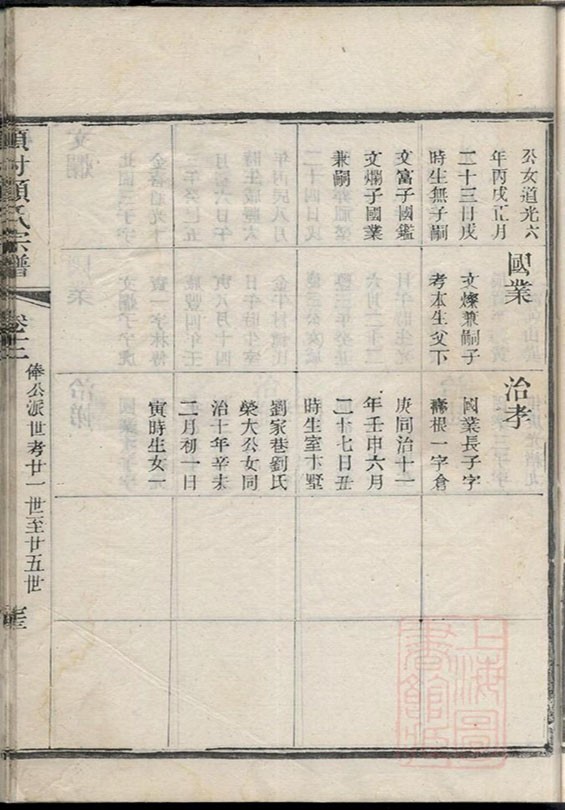 公女道光六
年丙戌正月
二十三日戌
時生無子嗣
文富子國鑑
文爛子國業
兼嗣
國業
文燦兼嗣子
考本生父下
治孝
國業長子字
根一字倉
庚同治十一
年壬申六月
二十七日丑
時生室卞墅
劉家巷劉氏
榮大公女同
治十年辛未
二月初一日
寅時生女一
顧氏宗譜
卷十二
俸公派世考廿一世至廿五世
上海圖
書館藏